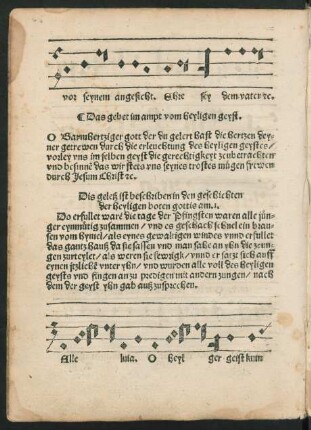 vor seynem angesicht. Ehre sey dem vater rc.
¶ Das gebet im ampt vom heyligen geyst.
O Barmhertziger gott der du gelert hast die hertzen dey-
ner getrewen durch die erleuchtung des heyligen geystes/
vorley vns im selben geyst die gerechtigkeyt zu betrachten
vnd besinnē das wir stets vns seynes trostes mügen frewen
durch Jesum Christ rc.
Dis geletz ist beschriben in den geschichten
der heyligen boten gottis am .i.
Do erfullet warē die tage der Pfingsten waren alle jün-
ger eynmütig zusammen / vnd es geschach schnel ein brau-
sen vom hymel / als eynes gewaltigen windes vnnd erfullet
das gantz hauß da sie sassen vnd man sahe an yhn die zeun-
gen zurteylet / als weren sie fewrigk / vnnd er satzt sich auff
eynen itzlichē vnter yhn / vnd wurden alle voll des heyligen
geysts vnd fingen an zu predigen mit andern zungen / nach
dem der geyst yhn gab auß zusprechen.
Alle luia. O heyl ger geist kum